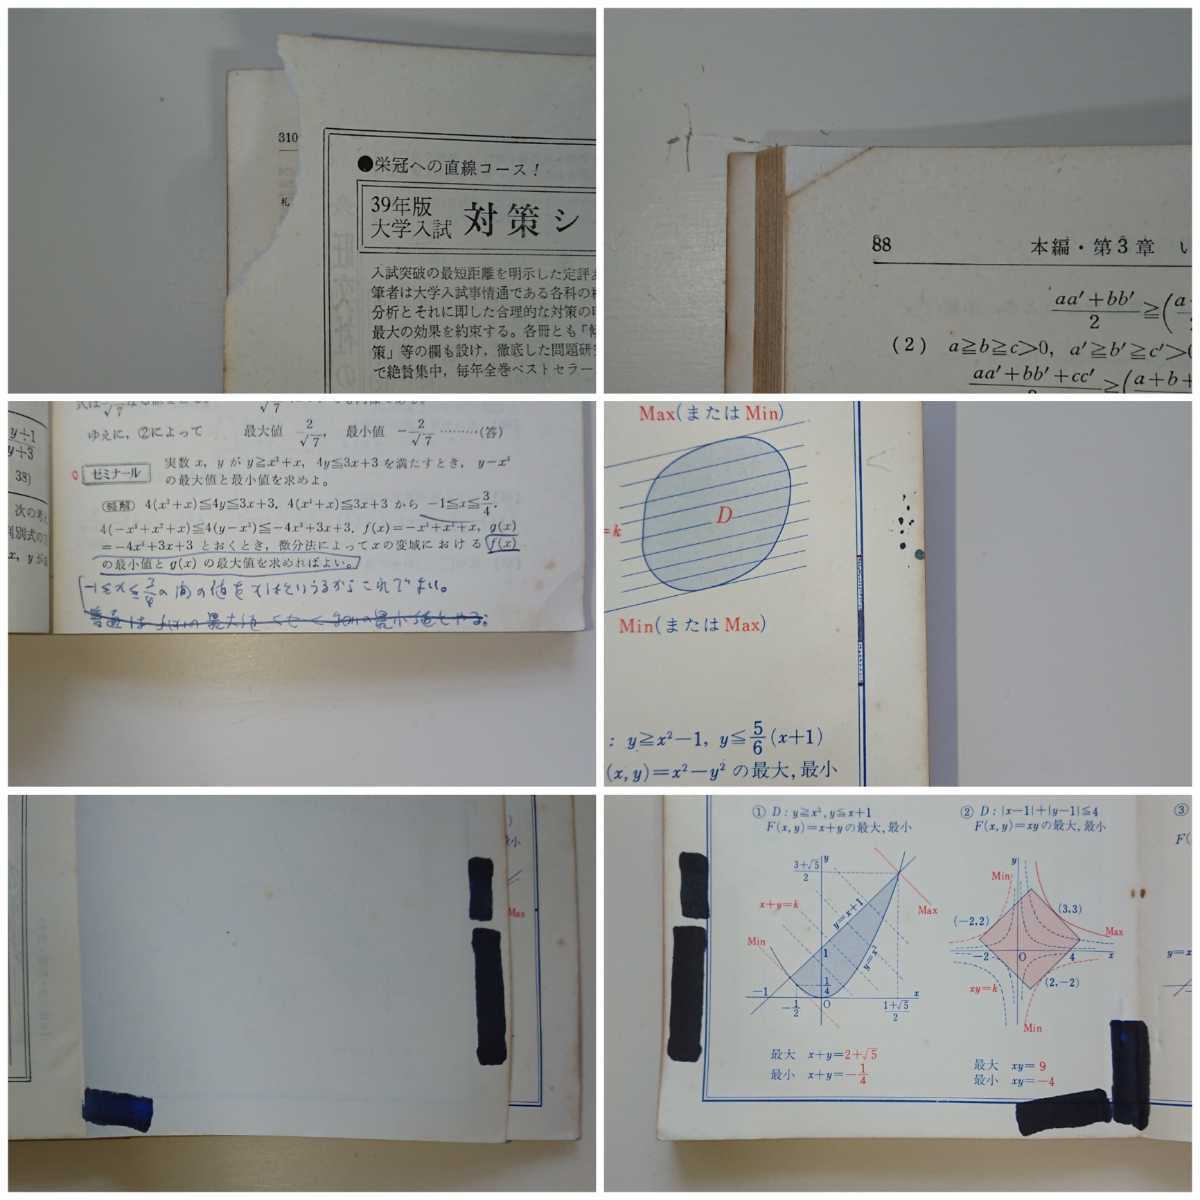 310
札
●栄冠への直線コース!
39年版
大学入試 対策シ
入試突破の最短距離を明示した定評
筆者は大学入試事情通である各科の
分析とそれに即した合理的な対策の
最大の効果を約束する。各冊とも「
策」等の欄も設け,徹底した問題研
で絶賛集中,毎年全巻ベストセラー
88 本編・第3章 い
aa'+bb'/2 ≧(a
(2) a≧b≧c>0, a'≧b'≧c'>0
aa'+bb'+cc' ≧(a+b+
y+1
y+3
38)
次の考
判別式の
x, y が
ゆえに,②によって 最大値 2/√7, 最小値 −2/√7 ………(答)
ゼミナール 実数 x, y が y≧x²+x, 4y≦3x+3 を満たすとき, y−x³
の最大値と最小値を求めよ。
(略解) 4(x²+x)≦4y≦3x+3. 4(x²+x)≦3x+3 から −1≦x≦3/4.
4(−x³+x²+x)≦4(y−x³)≦−4x³+3x+3. f(x)=−x³+x²+x, g(x)
=−4x³+3x+3 とおくとき, 微分法によって x の変域における f(x)
の最小値と g(x) の最大値を求めればよい。
−1≦x≦3/4 の間の値を xはとりうるからこれでよい。
Max(または Min)
D
=k
Min(または Max)
: y≧x²−1, y≦5/6(x+1)
(x,y)=x²−y² の最大,最小
小
Max
① D: y≧x², y≦x+1
F(x,y)=x+y の最大,最小
3+√5/2
y
x+y=k
y=x+1
Max
Min
1
y=x²
−1
1/4
−1/2
O
1+√5/2
x
最大 x+y=2+√5
最小 x+y=−1/4
② D: |x−1|+|y−1|≦4
F(x,y)=xy の最大,最小
y
Min
(−2,2)
(3,3)
Max
−2
O
4
x
xy=k
(2,−2)
Min
最大 xy=9
最小 xy=−4
③
F(
y=x